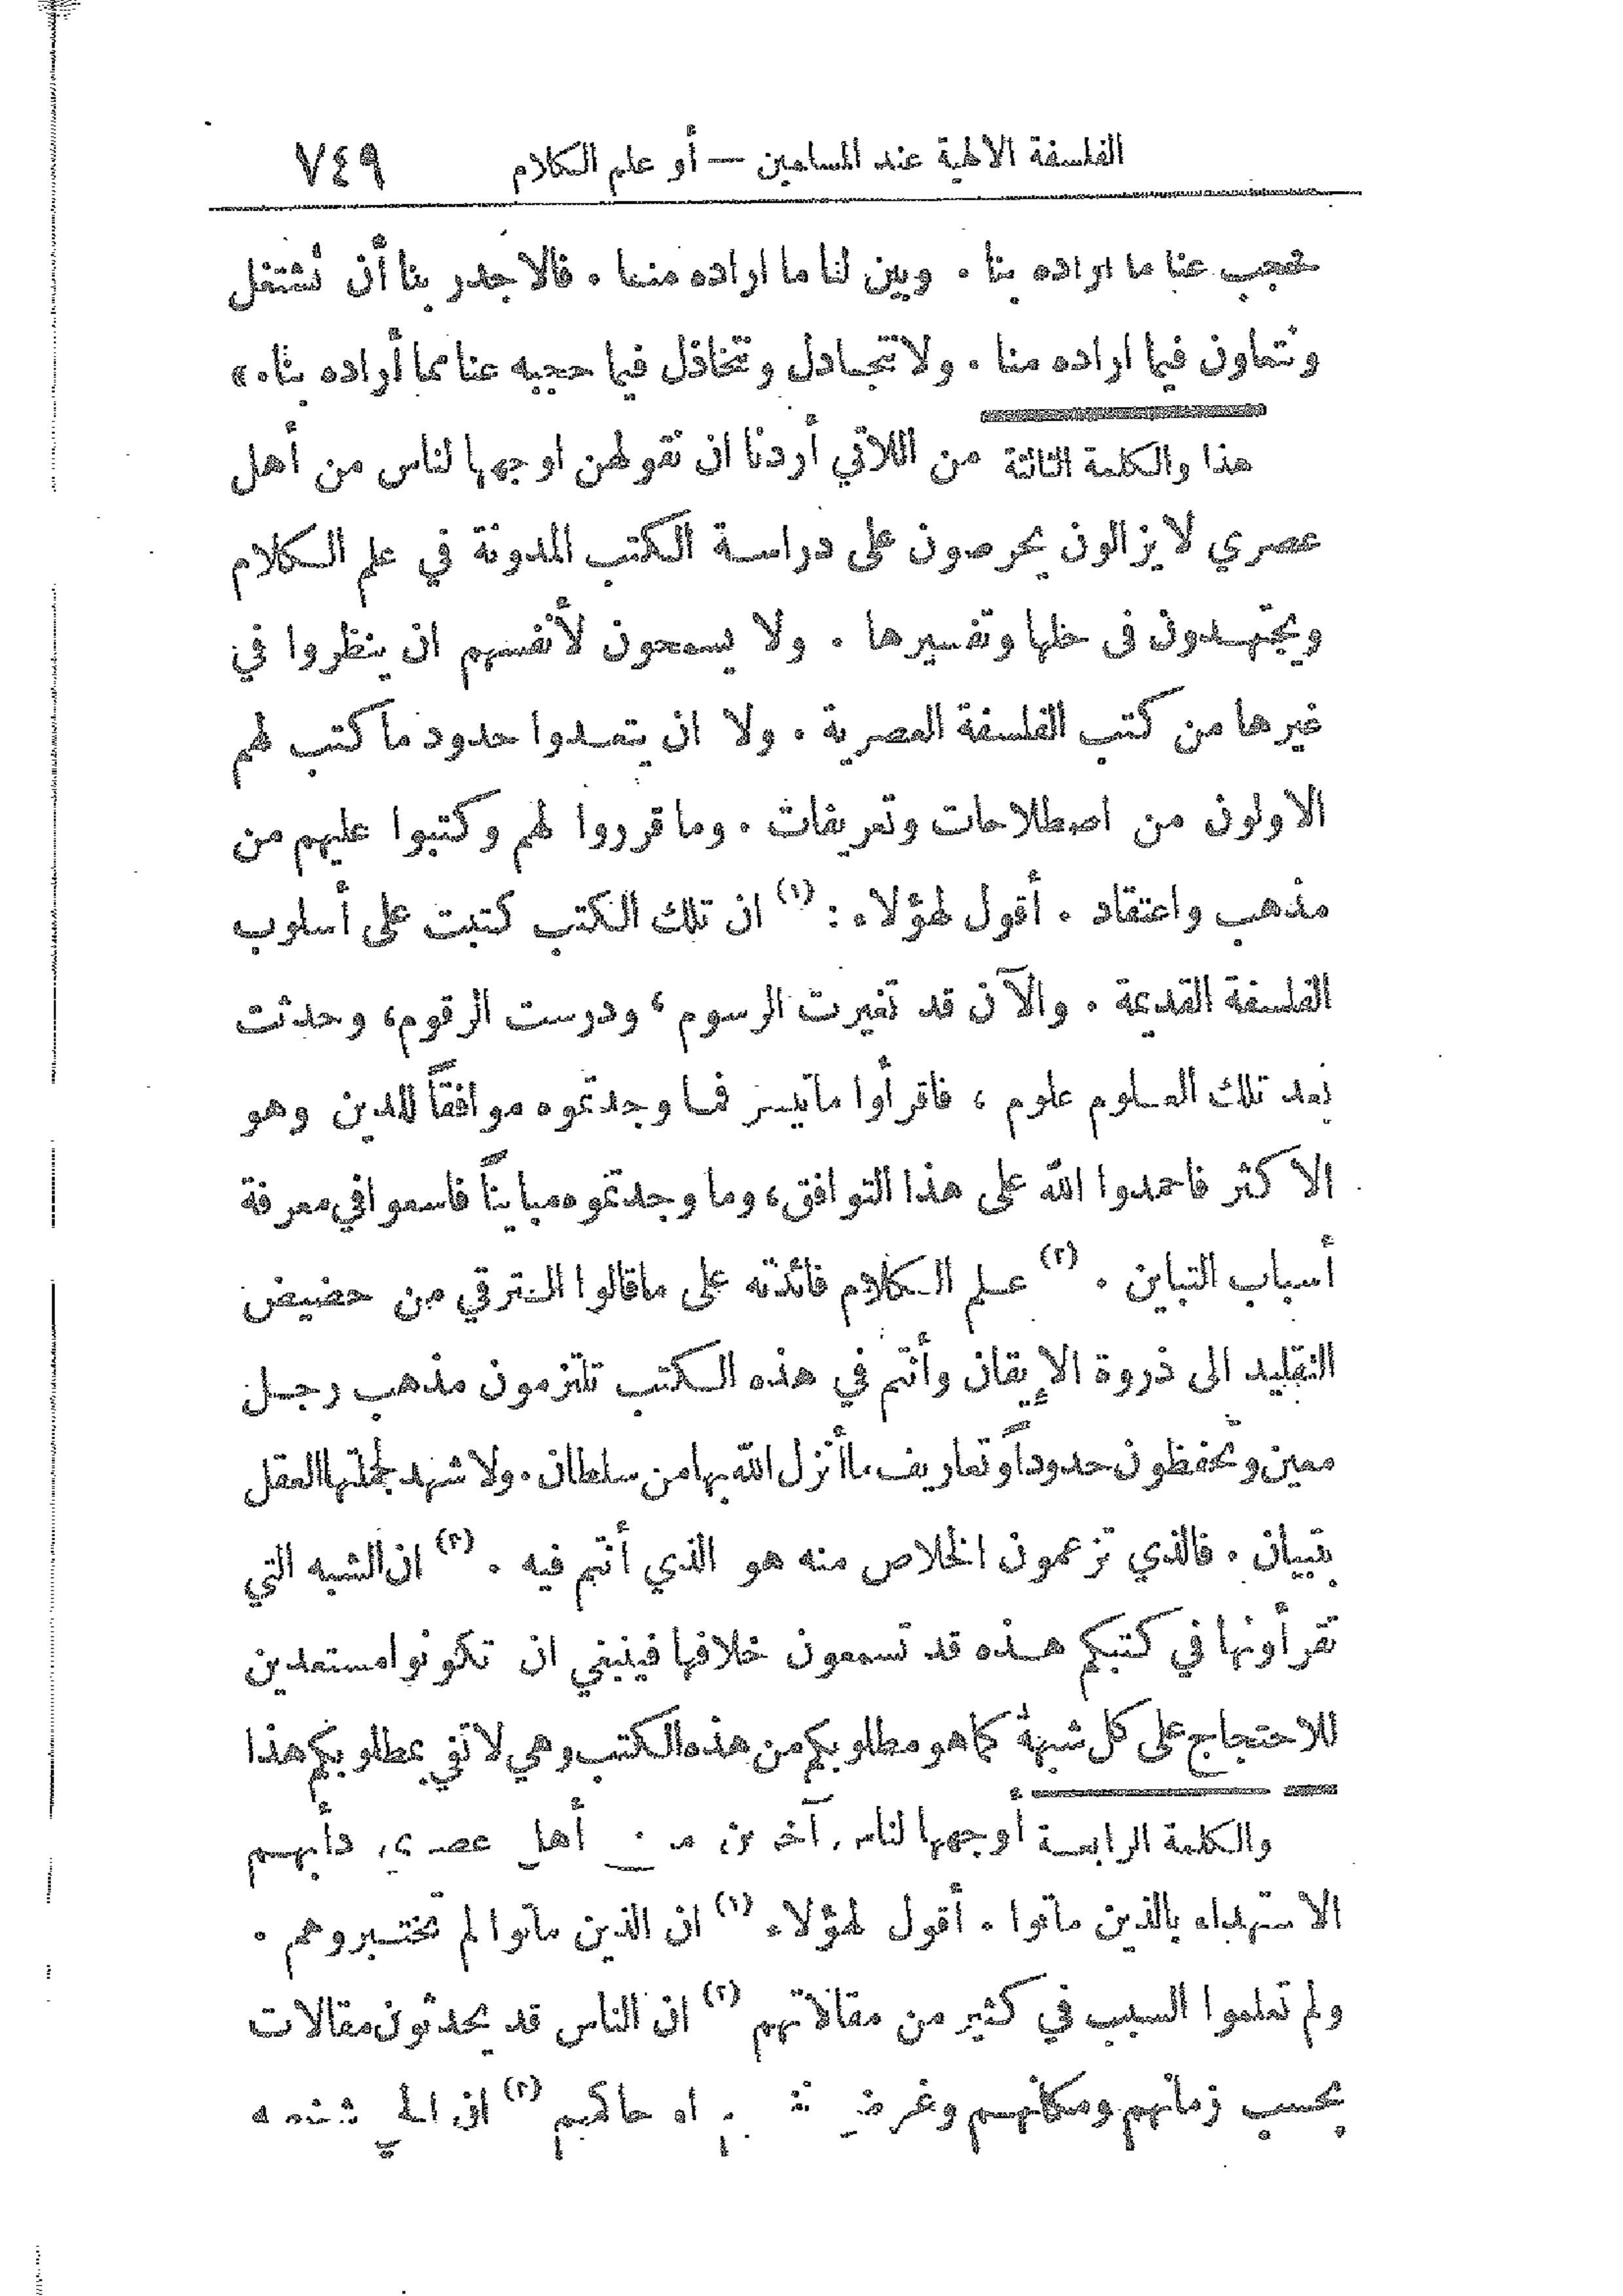 الفلسفة الالهية عند المسلمين — أو علم الكلام ٧٤٩
فحجب عنا ما اراده بنا . وبين لنا ما اراده منا . فالاجدر بنا أن نشتغل
ونتعاون فيما اراده منا . ولا نتجادل ونتخاذل فيما حجبه عنا مما أراده بنا . »
هذا والكلمة الثالثة من اللاتي أردنا ان نقولهن اوجهها لناس من أهل
عصري لا يزالون يحرصون على دراسة الكتب المدونة في علم الكلام
ويجتهدون فى حلها وتفسيرها . ولا يسمحون لأنفسهم ان ينظروا في
غيرها من كتب الفلسفة العصرية . ولا ان يتعدوا حدود ما كتب لهم
الاولون من اصطلاحات وتعريفات . وما قرروا لهم وكتبوا عليهم من
مذهب واعتقاد . أقول لهؤلاء : (١) ان تلك الكتب كتبت على أسلوب
الفلسفة القديمة . والآن قد تغيرت الرسوم ، ودرست الرقوم ، وحدثت
بعد تلك العلوم علوم ، فاقرأوا ماتيسر فما وجدتموه موافقاً للدين وهو
الاكثر فاحمدوا الله على هذا التوافق ، وما وجدتموه مبايناً فاسعوا في معرفة
أسباب التباين . (٢) علم الكلام فائدته على ماقالوا الترقي من حضيض
التقليد الى ذروة الإيقان وأنتم في هذه الكتب تلتزمون مذهب رجل
معين وتحفظون حدوداً وتعاريف ما أنزل الله بها من سلطان . ولا شهد لجملتها العقل
بتبيان . فالذي تزعمون الخلاص منه هو الذي أنتم فيه . (٣) ان الشبه التي
تقرأونها في كتبكم هذه قد تسمعون خلافها فينبغي ان تكونوا مستعدين
للاحتجاج على كل شبهة كما هو مطلوبكم من هذه الكتب وهي لا تفي بمطلوبكم هذا
والكلمة الرابعة أوجهها لناس آخرين من أهل عصري دأبهم
الاستهداء بالذين ماتوا . أقول لهؤلاء (١) ان الذين ماتوا لم تختبروهم .
ولم تعلموا السبب في كثير من مقالاتهم (٢) ان الناس قد يحدثون مقالات
بحسب زمانهم ومكانهم او حاكمهم (٣) ان